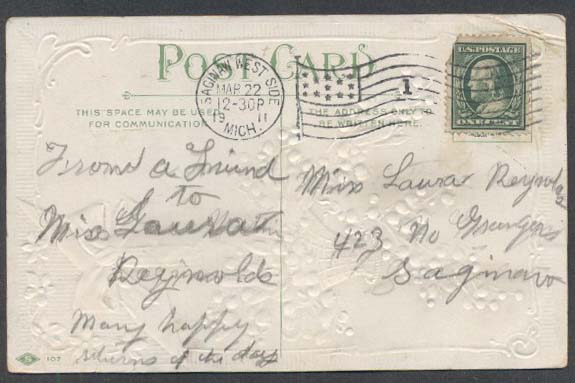 POST CARD
SAGINAW WEST SIDE
MAR 22
12-30P
19 11
MICH.
1
U.S. POSTAGE
ONE CENT
THIS SPACE MAY BE USED
FOR COMMUNICATION.
THE ADDRESS ONLY TO
BE WRITTEN HERE.
From a Friend
to
Miss
Reginolds
Many happy
returns of the day
Miss Laura Reynolds
423 No Granger
Saginaw
S 107